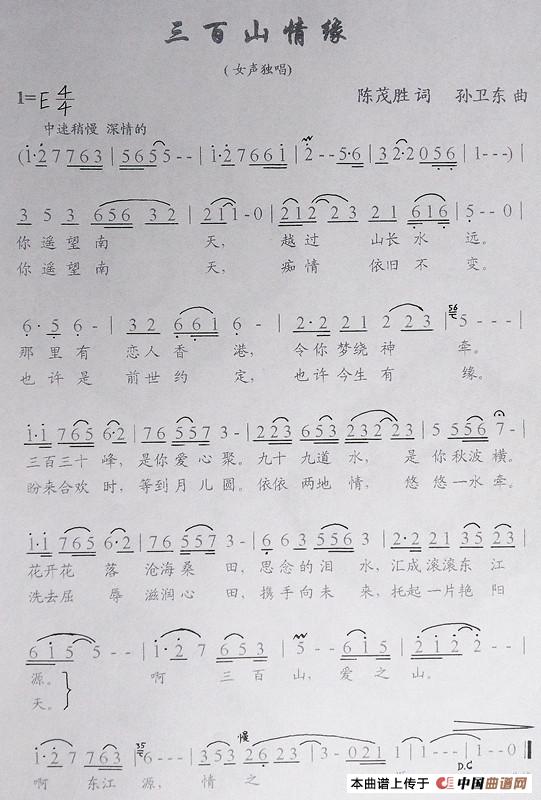 三百山情缘
(女声独唱)
1=E 4/4
陈茂胜 词 孙卫东 曲
中速稍慢 深情的
(1·2 7 7 6 3 | 5 6 5 5 - - | 1·2 7 6 6 1 | 2 - - 5·6 | 3 2·2 0 5 6 | 1 - - -) |
3 5 3 6 5 6 3 2 | 2 1 1 - 0 | 2 1 2 2 2 3 2 1 6 1 6 | 5 - - 0 |
你遥望南 天, 越过 山长水 远。
你遥望南 天, 痴情 依旧不 变。
6 · 5 6 - | 3 2 6 6 1 6 - | 2·2 2 1 2 2 2 3 | 56 5 - - - |
那里有 恋人香 港, 令你梦绕神 牵。
也许是 前世约 定, 也许今生有 缘。
1·1 7 6 5 6·2 | 7 6 5 5 7 3 - | 2 2 3 6 5 3 2 3 2 2 3 | 5 5 5 6 7 - |
三百三十 峰, 是你爱心聚。九十九道水, 是你秋波横。
盼来合欢 时, 等到月儿圆。依依两地情, 悠悠一水牵。
1·2 7 6 5 6·2 | 7 6 5 5 7 3 - | 6 6 3 5 5 5 6 7 6 | 2·2 2 1 3 5 2 3 |
花开花 落 沧海桑 田, 思念的泪 水, 汇成滚滚东 江
洗去屈 辱 滋润心 田, 携手向未 来, 托起一片艳 阳
6 1 5 5 - - | 1·2 7 6 6 5 3 | 5 - - 6 1 5 | 2 1 2 2 - - |
源。 啊 三百 山, 爱之 山。
天。
1·2 7 7 6 3 | 35 6 - - - |
慢
啊 东江 源, 情之
D.C
本曲谱上传于 中国曲谱网